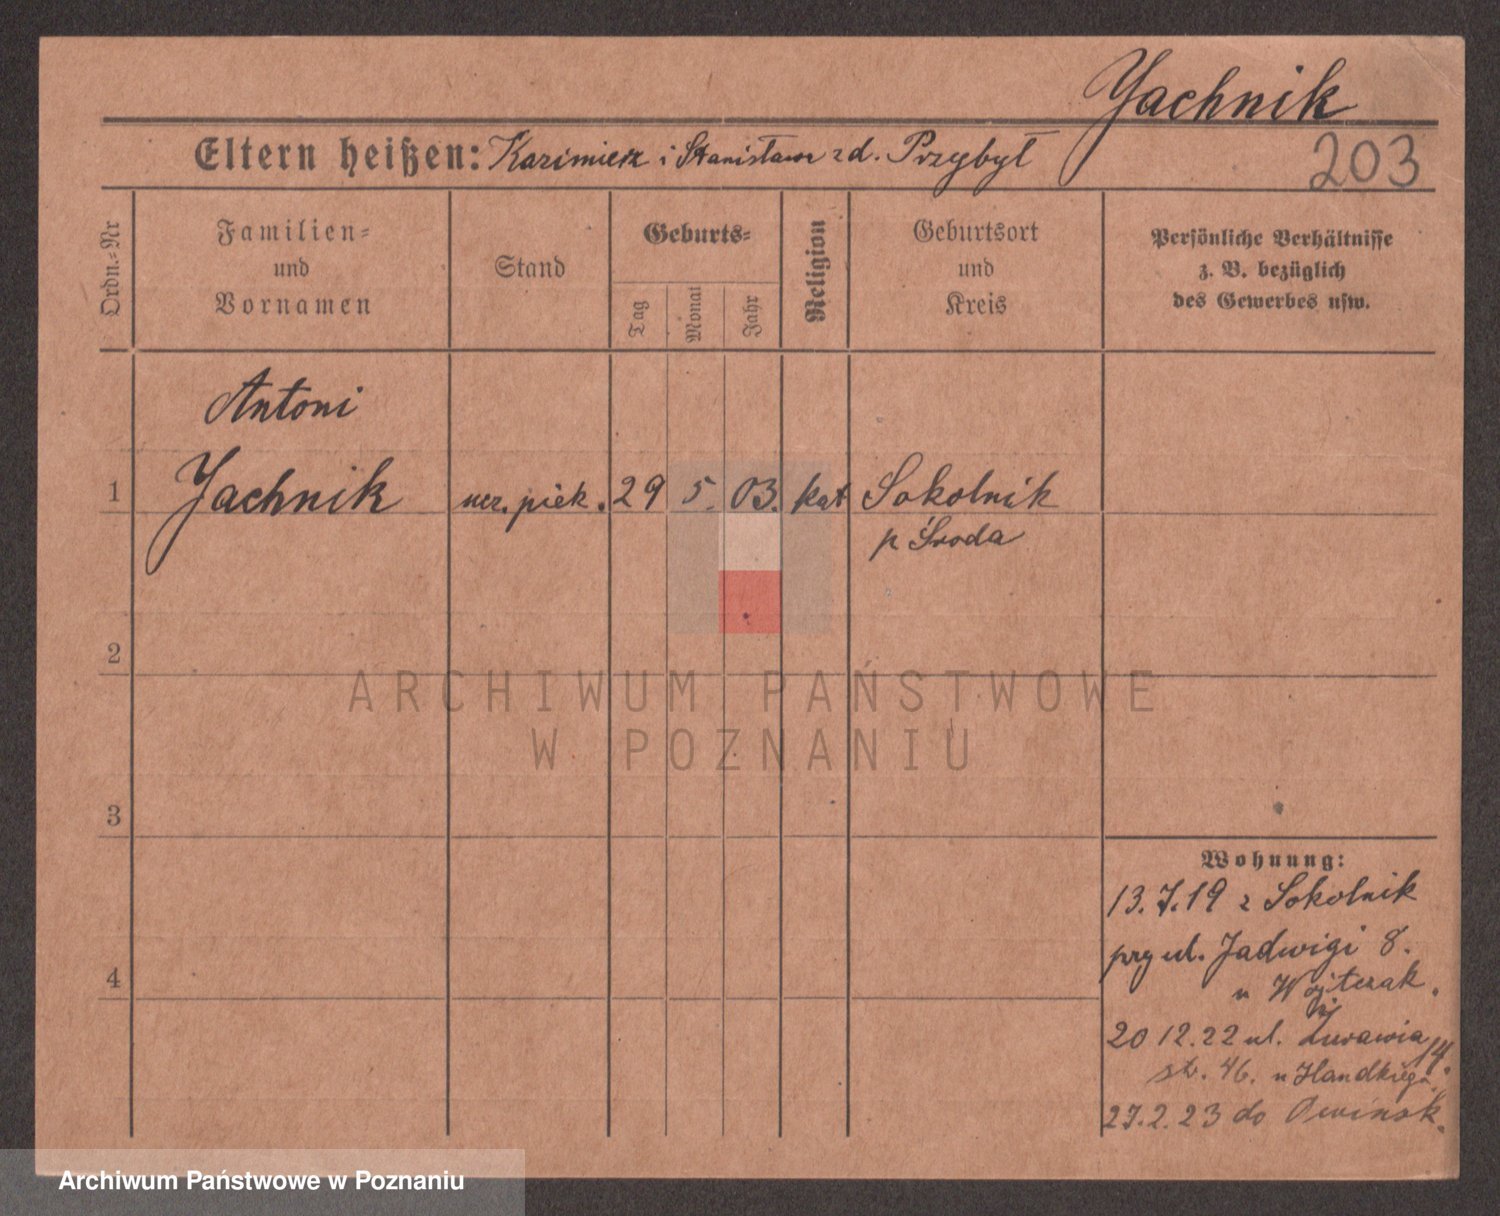 Yachnik
Eltern heißen: Kazimierz i Stanisława z d. Przybył
203
Ordn.-Nr
Familien-
und
Vornamen
Stand
Geburts-
Tag
Monat
Jahr
Religion
Geburtsort
und
Kreis
Persönliche Verhältnisse
z. B. bezüglich
des Gewerbes usw.
Antoni
1 Jachnik ucz. piek. 29 5. 03. kat Sokolnik
p Środa
2
ARCHIWUM PAŃSTWOWE
W POZNANIU
3
4
Wohnung:
13.7.19 z Sokolnik
prz ul. Jadwigi 8.
u Wojtczak.
20 12.22 ul. Żurawia 14.
st. 46. u
27.2.23 do Owińsk.
Archiwum Państwowe w Poznaniu